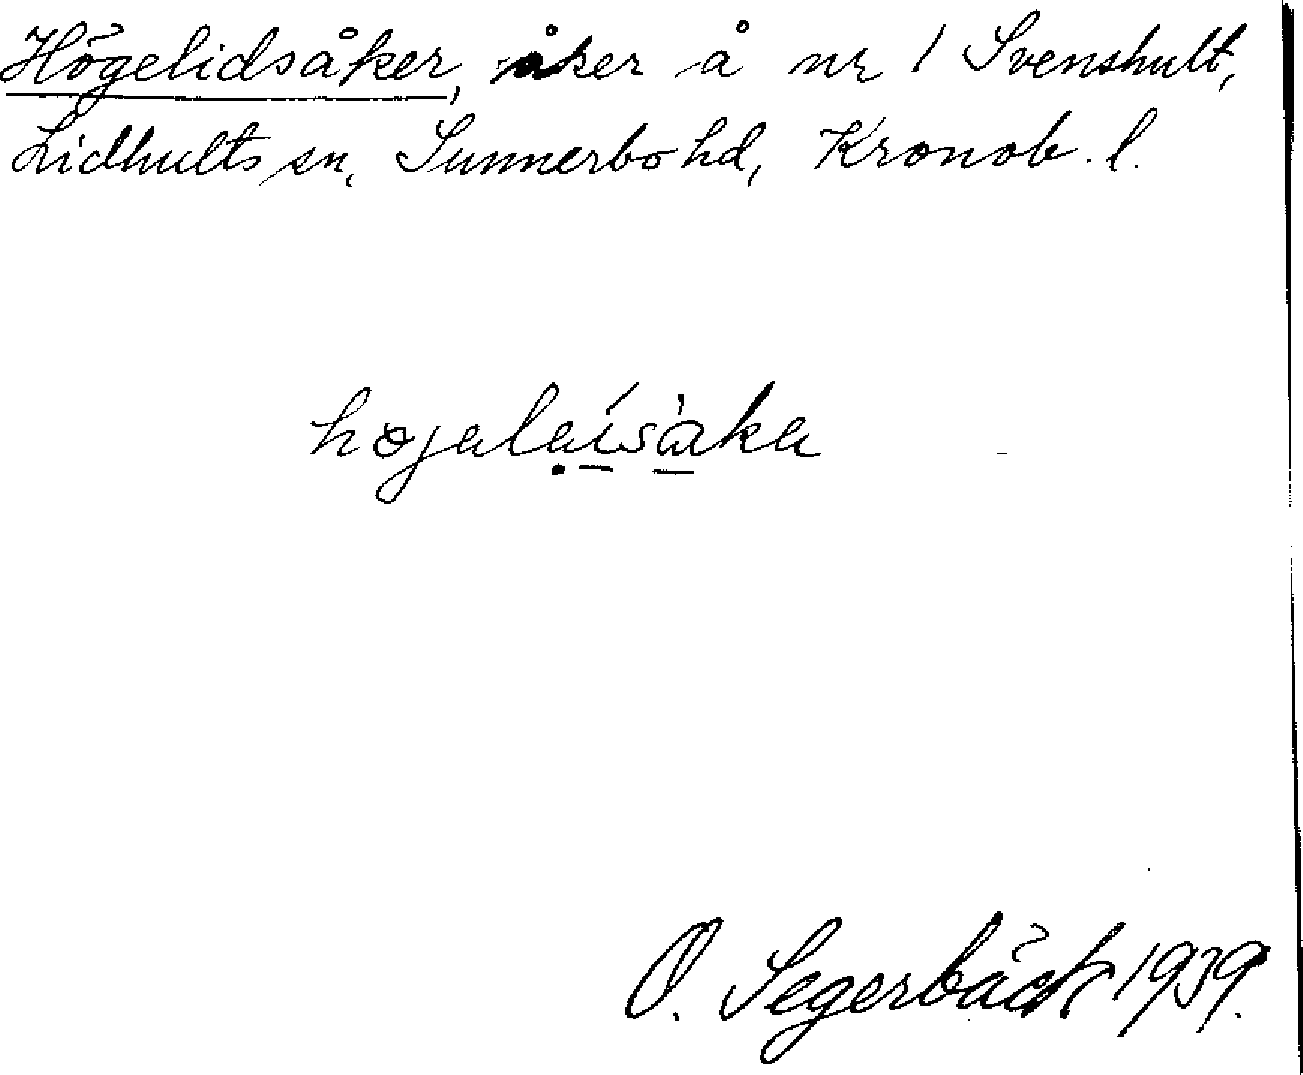 Högelidsåker, åker å nr 1 Svenshult,
Lidhults sn, Sunnerbo hd, Kronob. l.
O. Segerbäck 1939.